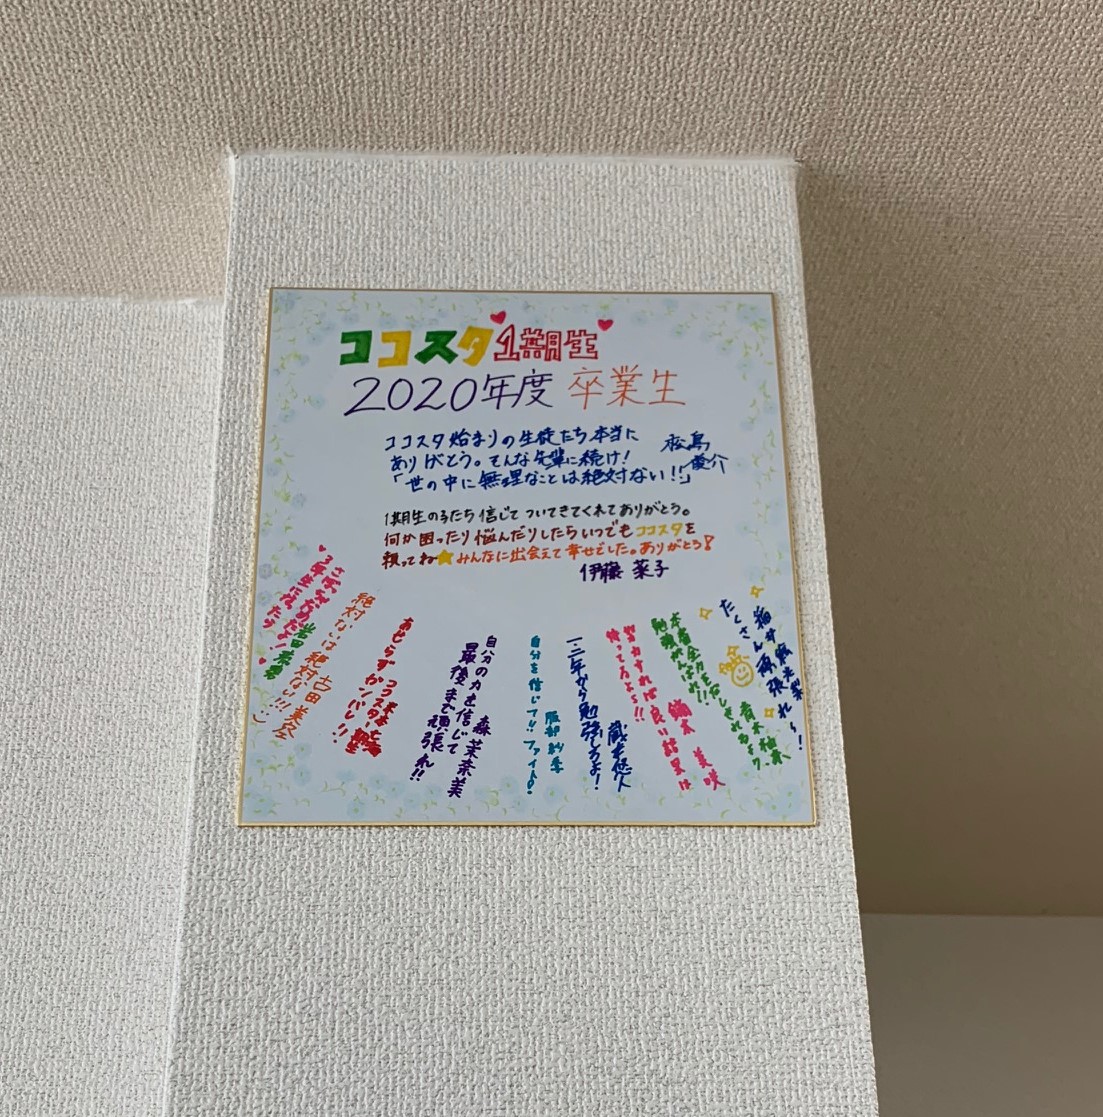 ココスタ1期生
2020年度 卒業生
ココスタ始まりの生徒たち本当に
ありがとう。そんな先輩に続け!
「世の中に無理なことは絶対ない!!」
松島
慶介
1期生の子たち信じてついてきてくれてありがとう。
何か困ったり悩んだりしたらいつでもココスタを
頼ってね みんなに出会えて幸せでした。ありがとう!
伊藤 菜子
たくさん頑張れ〜!
青木
勉強がんばれ!!
鏑木 美咲
努力すれば良い結果は
待ってるよ〜!!
蔵本悠人
一二年から勉強しろよ!
服部紗季
自分を信じて!! ファイト!
森 茉奈美
自分の力を信じて
最後まで頑張れ!!
ココスター1期生
あせらずガンバレ!!
古田 美空
絶対ないは絶対ない!!:)
岩田
3年生になったら